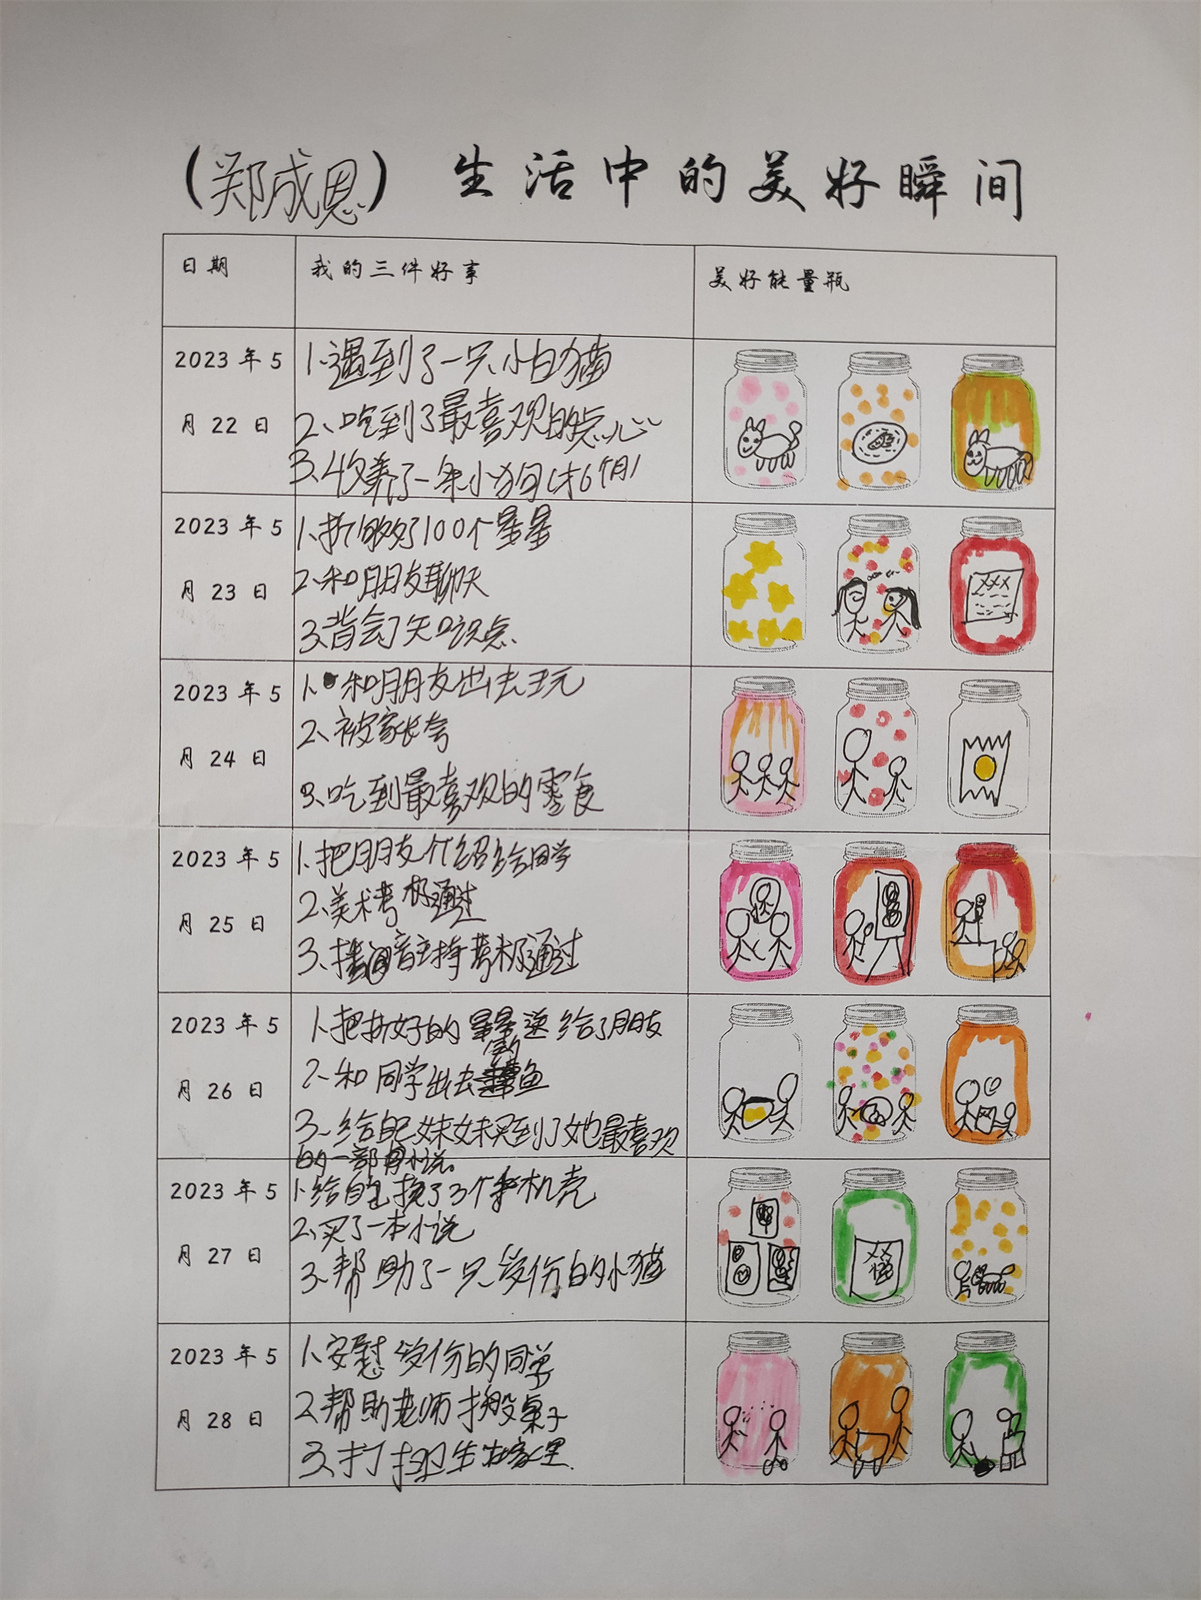 (郑成恩) 生活中的美好瞬间
日期 我的三件好事 美好能量瓶
2023 年 5
月 22 日
1、遇到了一只小白猫
2、吃到了最喜欢的点心
3、收养了一条小狗(才6个月)
2023 年 5
月 23 日
1、折够了100个星星
2、和朋友聊天
3、背会了知识点
2023 年 5
月 24 日
1、和朋友出去玩
2、被家长夸
3、吃到最喜欢的零食
2023 年 5
月 25 日
1、把朋友介绍给同学
2、美术考极通过
3、播音主持考极通过
2023 年 5
月 26 日
1、把折好的星星送给了朋友
2、和同学出去钓鱼
3、给自己妹妹买到了她最喜欢
的一部小说。
2023 年 5
月 27 日
1、给自己换了3个手机壳
2、买了一本小说
3、帮助了一只受伤的小猫
2023 年 5
月 28 日
1、安慰受伤的同学
2、帮助老师搬桌子
3、打扫卫生在家里